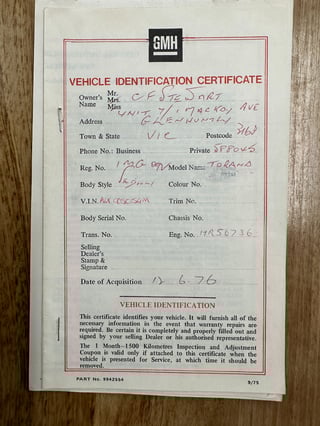 GMH
VEHICLE IDENTIFICATION CERTIFICATE
Owner's Name Mr. Mrs. Miss C F STEWART
UNIT 7/1 MACKOY AVE
Address GLENHUNTLY
Town & State VIC Postcode 3163
Phone No.: Business Private 588045
Reg. No. Model Name TORANA
Body Style Colour No.
V.I.N. Trim No.
Body Serial No. Chassis No.
Trans. No. Eng. No.
Selling
Dealer's
Stamp &
Signature
Date of Acquisition 12 6.76
VEHICLE IDENTIFICATION
This certificate identifies your vehicle. It will furnish all of the
necessary information in the event that warranty repairs are
required. Be certain it is completely and properly filled out and
signed by your selling Dealer or his authorised representative.
The 1 Month-1500 Kilometres Inspection and Adjustment
Coupon is valid only if attached to this certificate when the
vehicle is presented for Service, at which time it should be
removed.
PART No. 9942554 9/75